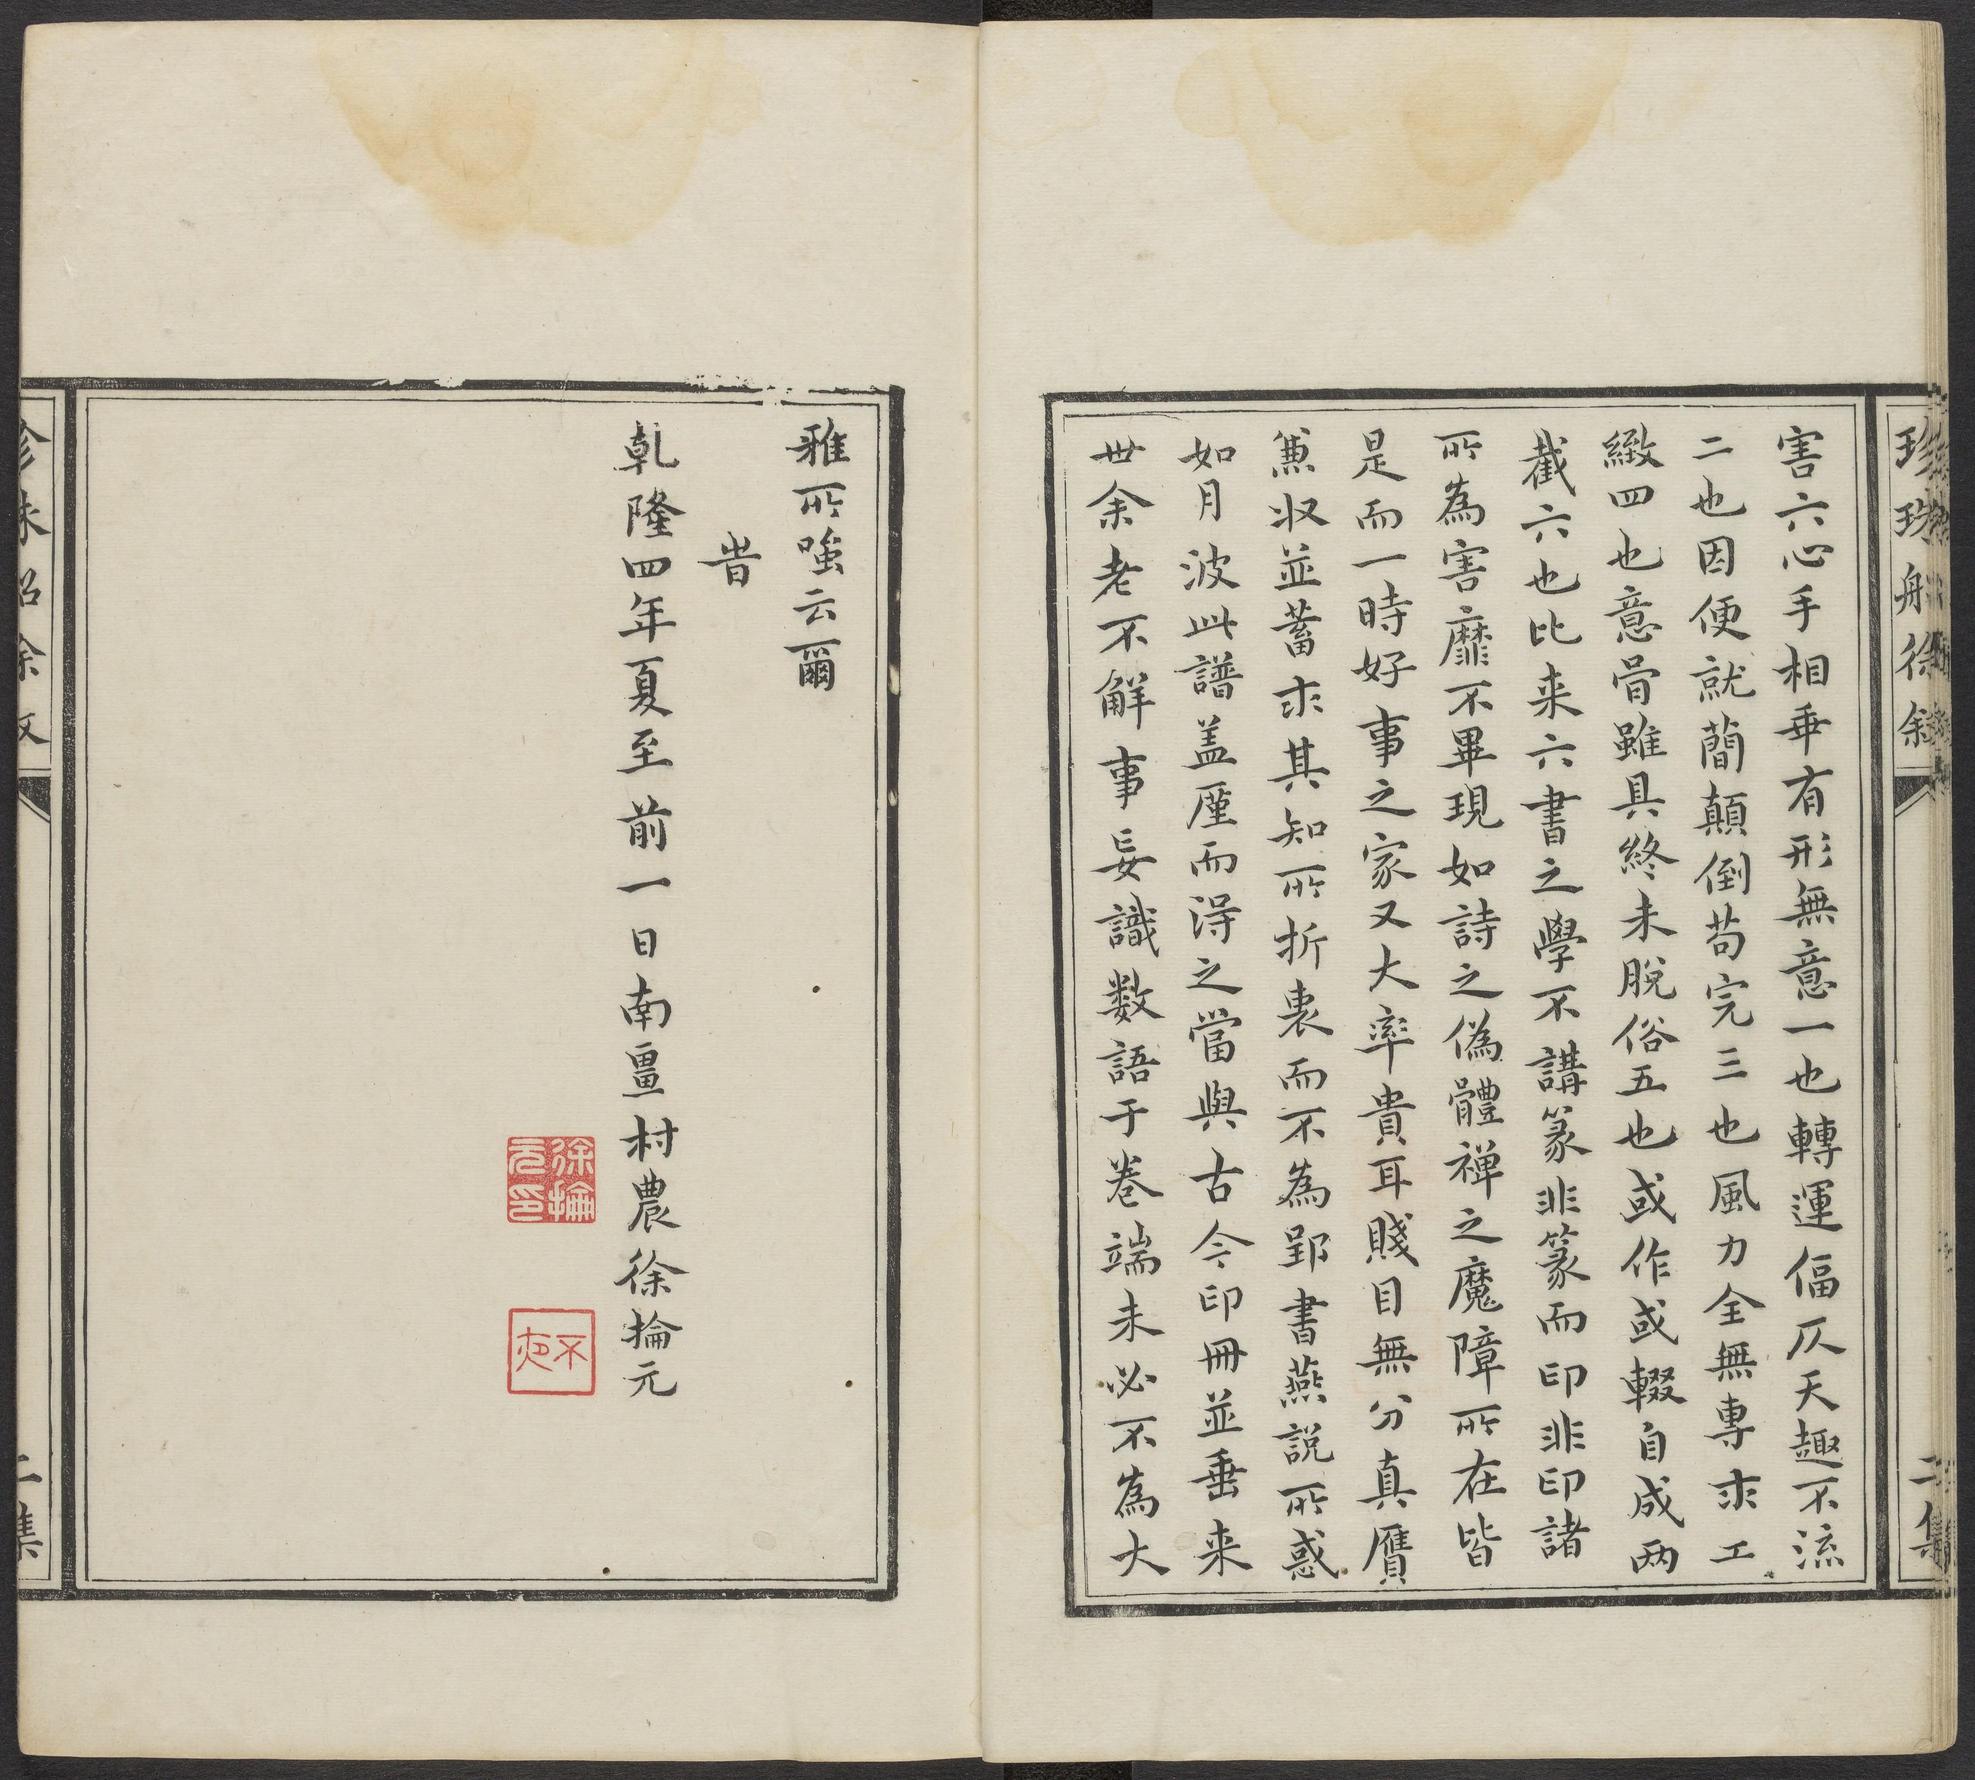 珍珠船徐敘
二集
害六心手相乖有形無意一也轉運偪仄天趣不流
二也因便就簡顛倒苟完三也風力全無專求工
緻四也意骨雖具終未脫俗五也或作或輟自成兩
截六也比来六書之學不講篆非篆而印非印諸
所為害靡不畢現如詩之偽體禅之魔障所在皆
是而一時好事之家又大率貴耳賤目無分真贋
兼收並蓄求其知所折衷而不為郢書燕說所惑
如月波此譜盖厪而淂之當與古今印冊並垂来
世余老不解事妄識数語于卷端未必不為大
雅所嗤云爾
旹
乾隆四年夏至前一日南畺村農徐掄元
徐掄元印
不夜
二集